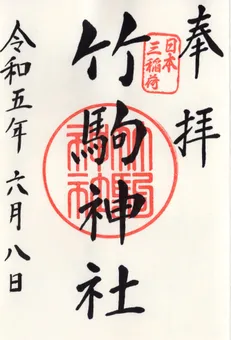 奉拝
日本
三稲荷
竹駒神社
令和五年 六月八日